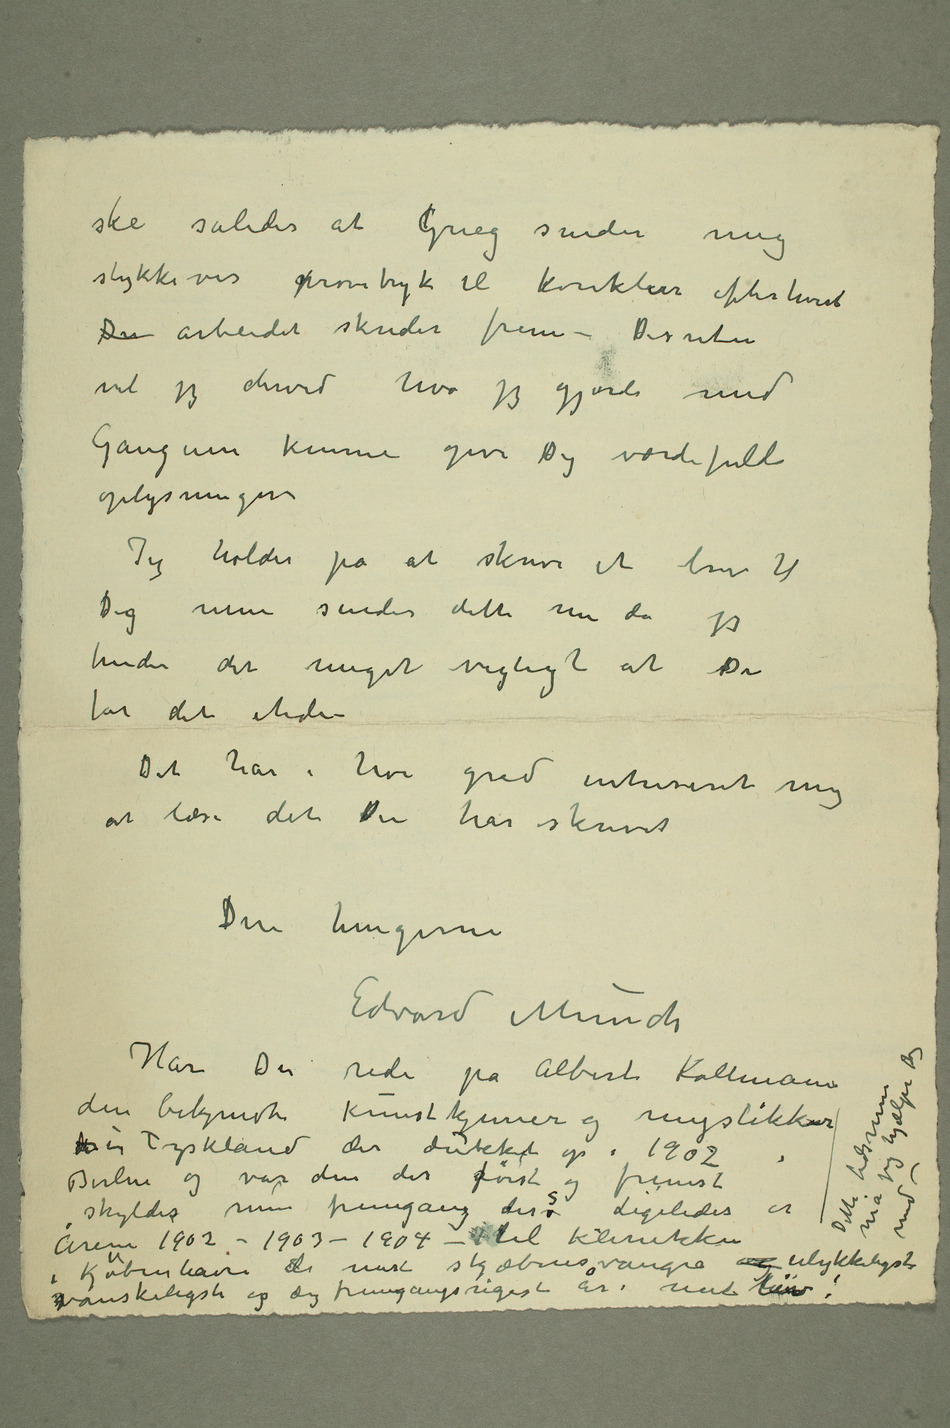 ske således at Grieg sender mig
stykkevis prøvetryk til korektur efterhvert
arbeidet skrider frem – Desuten
vil jeg derved hva jeg gjorde med
Gauguin kunne give Dig værdifulde
oplysninger
Jeg holder på at skrive et brev til
Dig men sender dette nu da jeg
finder det meget vigtigt at Du
får det itide –
Det har i høi grad intreseret mig
at læse det Du har skrevet
Din hengivne
Edvard Munch
Har Du rede på Albert Kollmann
den bekjendte Kunstkjenner og mystikker
i Tyskland der dukket op i 1902 i
Berlin og var den der først og fremst
skyldes min fremgang der Ligeledes er
Årene 1902 – 1903 – 1904 – til klinikken
i Kjøbenhavn de mest skjæbnesvangre ulykkeligste
vanskeligste og dog fremgangsrigest år i mit liv!
Dette tidsrum
må jeg hjælpe Dig
med –